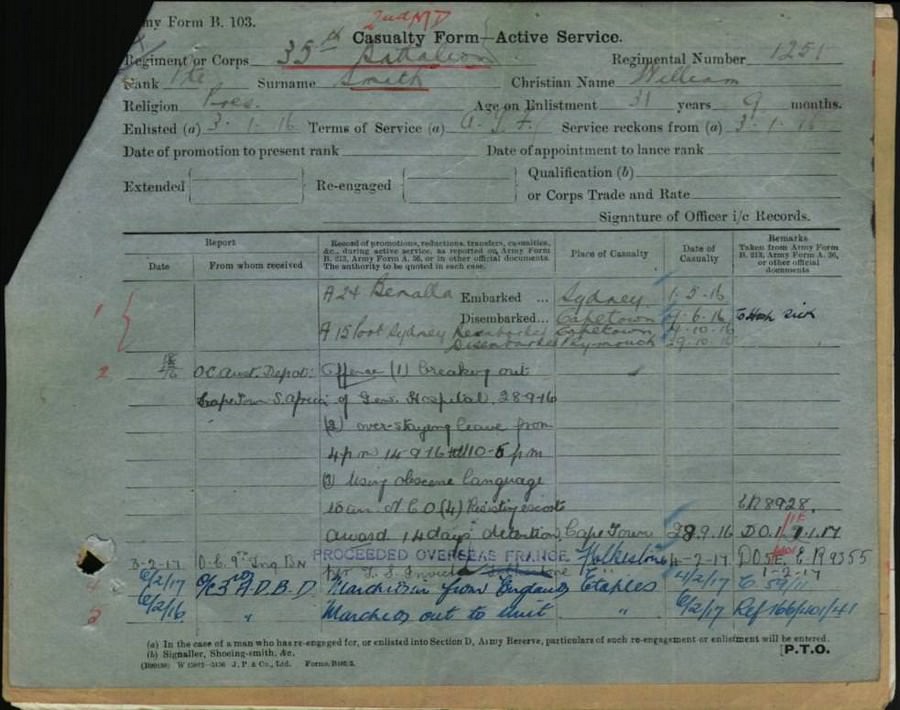 my Form B. 103.
2nd MD
Casualty Form—Active Service.
Regiment or Corps 35th Battalion Regimental Number 1251
Rank Pte Surname Smith Christian Name William
Religion Pres. Age on Enlistment 31 years 9 months.
Enlisted (a) 3.1.16 Terms of Service (a) A.I.F. Service reckons from (a) 3.1.16
Date of promotion to present rank Date of appointment to lance rank
Extended Re-engaged Qualification (b)
or Corps Trade and Rate
Signature of Officer i/c Records.
Report
Date From whom received
Record of promotions, reductions, transfers, casualties, &c., during active service, as reported on Army Form B. 213, Army Form A. 36, or in other official documents. The authority to be quoted in each case.
Place of Casualty
Date of Casualty
Remarks
Taken from Army Form B. 213, Army Form A. 36, or other official documents
A24 Benalla Embarked ... Sydney 1-5-16
1 Disembarked... Capetown 6-16 To Hosp Sick
A15 Port Sydney Reembarked Capetown 4-10-16
Disembarked Plymouth 29.10.16
2 O.C. Aust. Depot. Offence (1) breaking out
Cape Town S. Africa of Gen. Hospital 28-9-16
(2) over-staying leave from
4 pm 14 9 16 till 10-5 pm
(3) Using obscene language
CR 8928
to an N C O (4) Resisting escorts
award 14 days detention Cape Town 28.9.16 D.O.1. 1.1.17
3-2-17 O.C. 9th Trg Bn PROCEEDED OVERSEAS FRANCE Folkestone 4-2-17 DO 5 ER 9355
per T. S. Invicta Folkestone 1-2-17
4 6/2/17 O/C 3rd A.D.B.D Marched in from England Etaples 4/2/17
5 6/2/16 " Marched out to unit " 6/2/17 Ref 166/401/41
(a) In the case of a man who has re-engaged for, or enlisted into Section D, Army Reserve, particulars of such re-engagement or enlistment will be entered.
(b) Signaller, Shoeing-smith, &c.
[P.T.O.
J. P. & Co., Ltd.